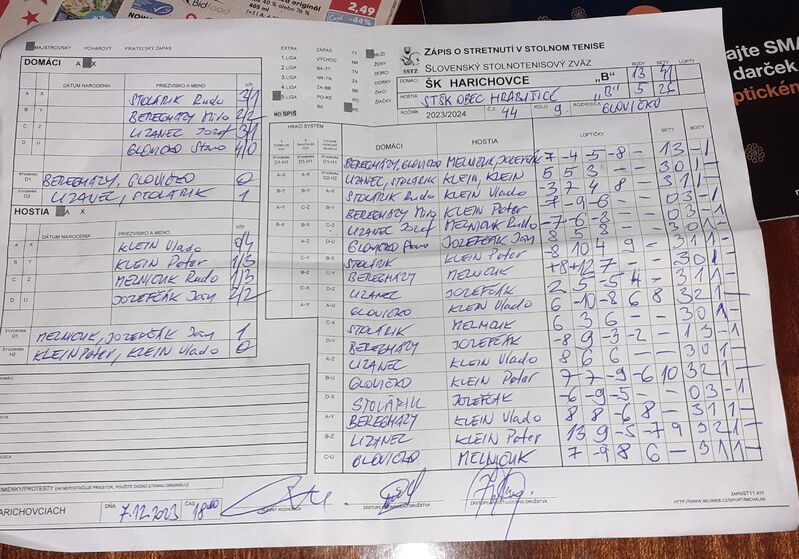 NOVINKA
Bidfood
originál
405 ml
2,49
-44%
ajte SMA
darček
ptickém
MAJSTROVSKÝ POHÁROVÝ PRIATEĽSKÝ ZÁPAS
DOMÁCI A X
DÁTUM NARODENIA PRIEZVISKO A MENO V/P
A X STOLÁRIK Rudo 3/1
B Y BEREGHÁZY Miro 2/2
C Z LIZANEC Jozef 3/1
D U GLOVIČKO Stano 4/0
ŠTVORHRA D1 BEREGHÁZY, GLOVIČKO 0
ŠTVORHRA D2 LIZANEC, STOLÁRIK 1
HOSTIA A X
DÁTUM NARODENIA PRIEZVISKO A MENO V/P
A X KLEIN Vlado 0/4
B Y KLEIN Peter 1/3
C Z MELNIČUK Rudo 1/3
D U JOZEFČÁK Ján 2/2
ŠTVORHRA MELNIČUK, JOZEFČÁK Ján 1
ŠTVORHRA H2 KLEIN Peter, KLEIN Vlado 0
DOMÁCI
HOSTIA
EXTRA ZÁPAD TT MUŽI
1.LIGA VÝCHOD ŽENY
2.LIGA BA-TT DORKY
3.LIGA NR-TN ZA DORCI
4.LIGA ZA-BB BB ŽIAČKY
5.LIGA PO-KE PO ŽIACI
MO SPIŠ BA KE
SSTZ
ZÁPIS O STRETNUTÍ V STOLNOM TENISE
SLOVENSKÝ STOLNOTENISOVÝ ZVÄZ
BODY SETY LOPTY
DOMÁCI ŠK HARICHOVCE "B" 13 41
HOSTIA STŠK OBEC HRABUŠICE "B" 5 26
ROČNÍK 2023/2024 Č.Z. 44 KOLO 9. ROZHODCA GLOVIČKO
HRACÍ SYSTÉM DOMÁCI HOSTIA LOPTIČKY SETY BODY
BEREGHÁZY, GLOVIČKO MELNIČUK, JOZEFČÁK 7 -4 -5 -8 - 1 3 - 1
LIZANEC, STOLÁRIK KLEIN, KLEIN 5 5 3 - - 3 0 1 -
STOLÁRIK Rudo KLEIN Vlado -3 7 4 8 - 3 1 1 -
BEREGHÁZY Miro KLEIN Peter -7 -9 -6 - - 0 3 - 1
LIZANEC Jozef MELNIČUK Rudo -7 -6 -8 - - 0 3 - 1
GLOVIČKO Stano JOZEFČÁK Ján 8 5 8 - - 3 0 1 -
STOLÁRIK KLEIN Peter -8 10 4 9 - 3 1 1 -
BEREGHÁZY MELNIČUK +8 +12 7 - - 3 0 1 -
LIZANEC JOZEFČÁK 2 5 -5 4 - 3 1 1 -
GLOVIČKO KLEIN Vlado 6 -10 -8 6 8 3 2 1 -
STOLÁRIK MELNIČUK 6 3 6 - - 3 0 1 -
BEREGHÁZY JOZEFČÁK -8 9 -3 -2 - 1 3 - 1
LIZANEC KLEIN Vlado 8 6 6 - - 3 0 1 -
GLOVIČKO KLEIN Peter 7 7 -9 -6 10 3 2 1 -
STOLÁRIK JOZEFČÁK -6 -9 -5 - - 0 3 - 1
BEREGHÁZY KLEIN Vlado 8 8 -6 8 - 3 1 1 -
LIZANEC KLEIN Peter 13 9 -5 -7 9 3 2 1 -
GLOVIČKO MELNIČUK 7 -9 8 6 - 3 1 1 -
OMIENKY/PROTESTY (AK NEPOSTAČUJE PRIESTOR, POUŽITE ZADNÚ STRANU ORIGINÁLU)
HARICHOVCIACH DŇA 7.12.2023 ČAS 18:00
HLAVNÝ ROZHODCA ZÁSTUPCA DOMÁCEHO DRUŽSTVA ZÁSTUPCA HOSŤUJÚCEHO DRUŽSTVA
ZAPISST11.RTF
HTTP://WWW.MUJWEB.CZ/SPORT/MICHALKA